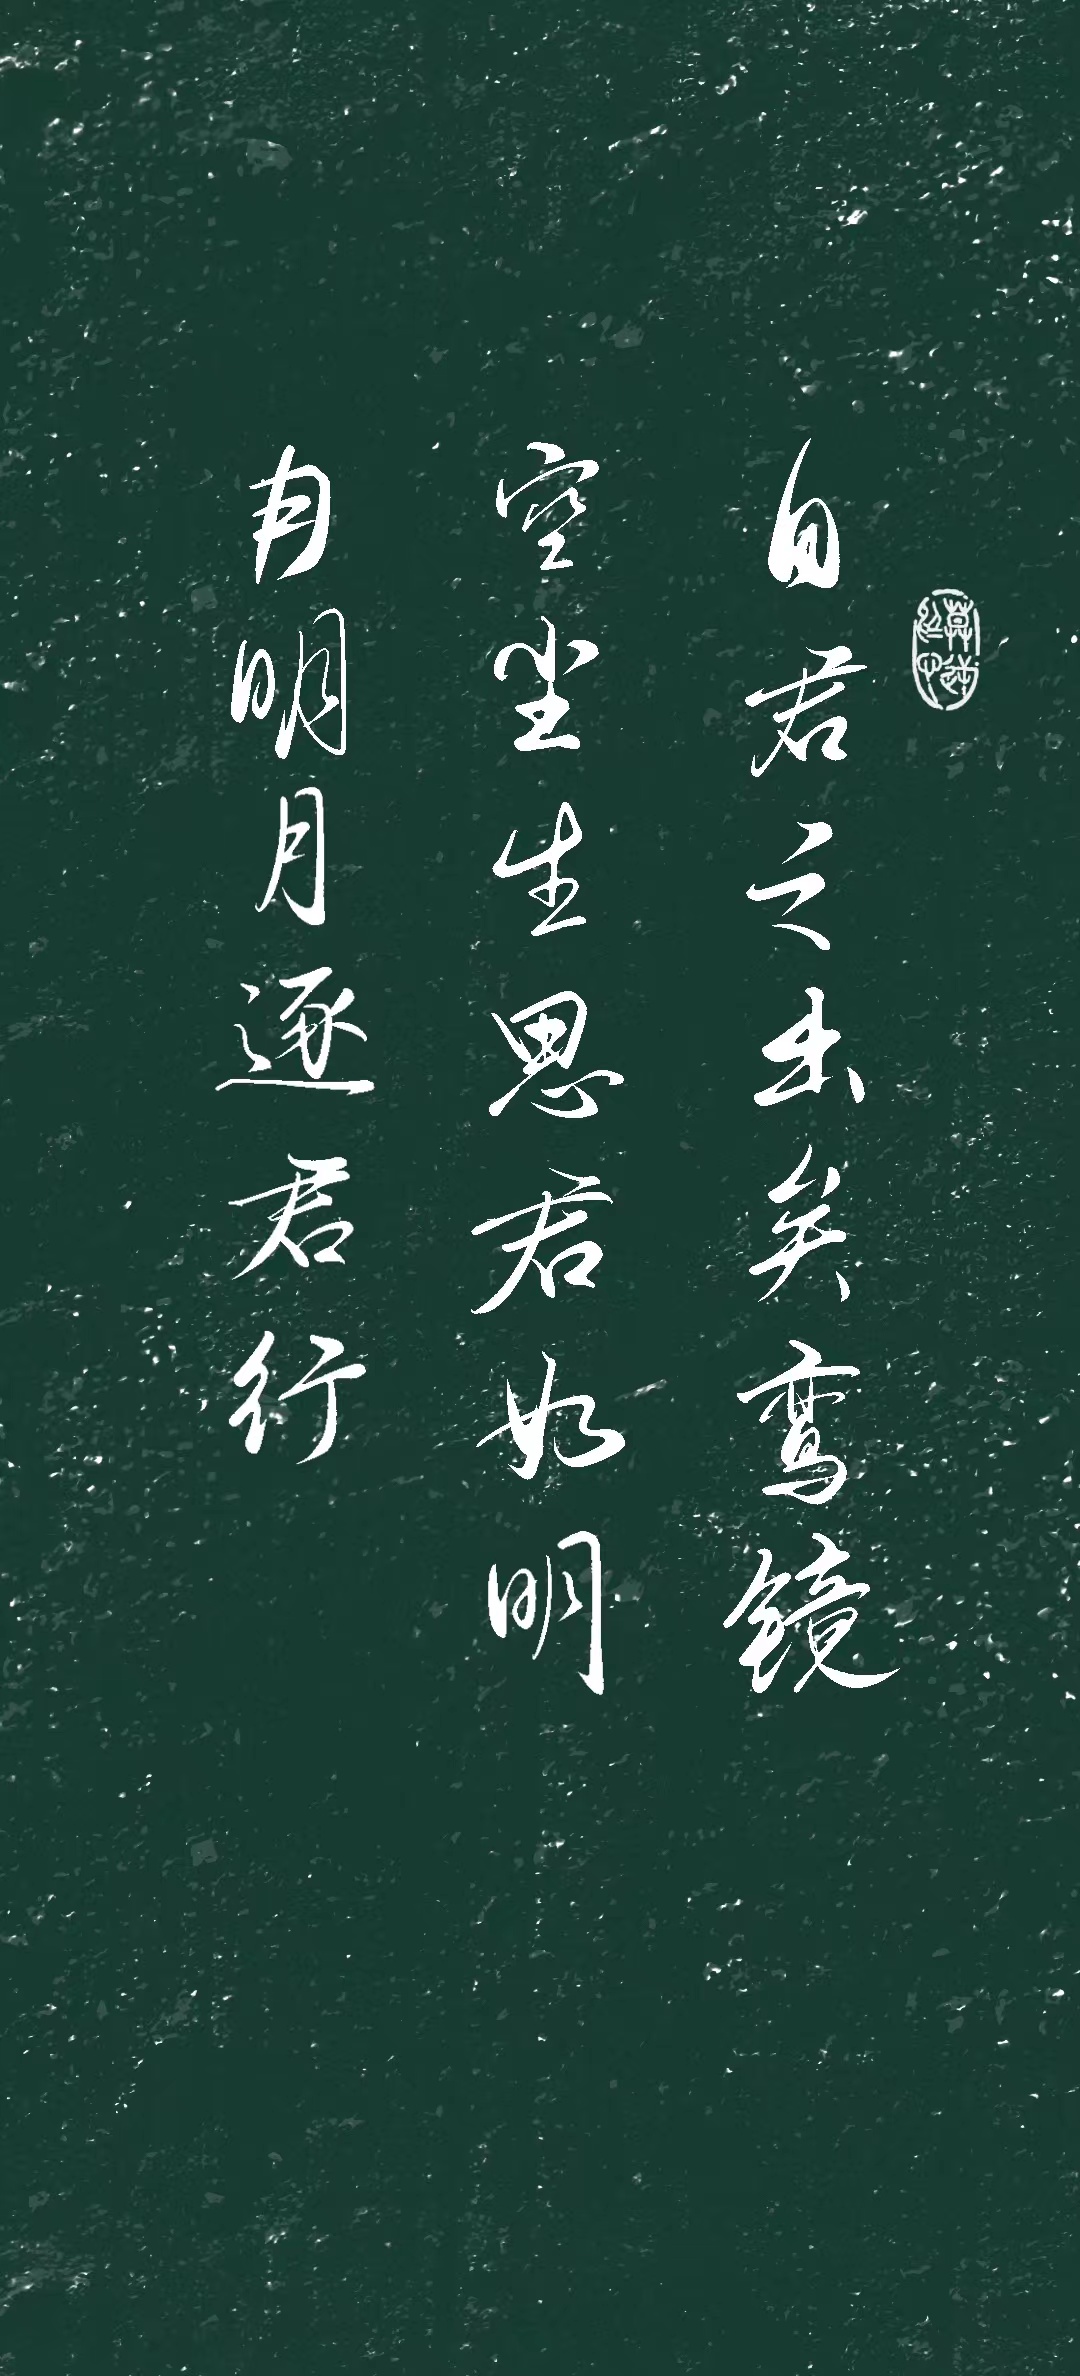 自君之出矣鸾镜
空尘生思君如明
月明月逐君行